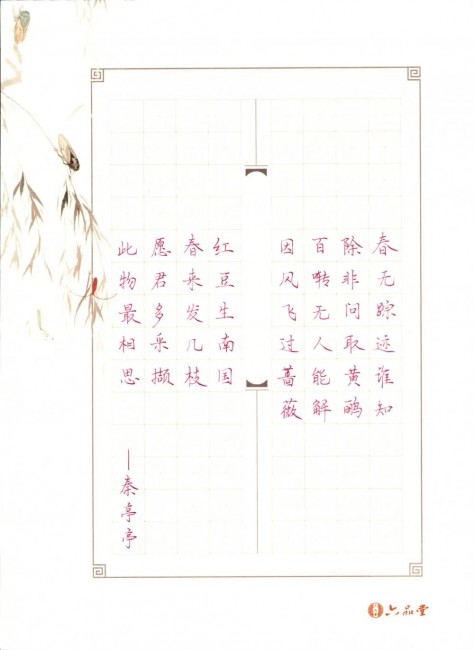 春无踪迹谁知
除非问取黄鹂
百啭无人能解
因风飞过蔷薇
红豆生南国
春来发几枝
愿君多采撷
此物最相思
—秦亭亭
六品堂